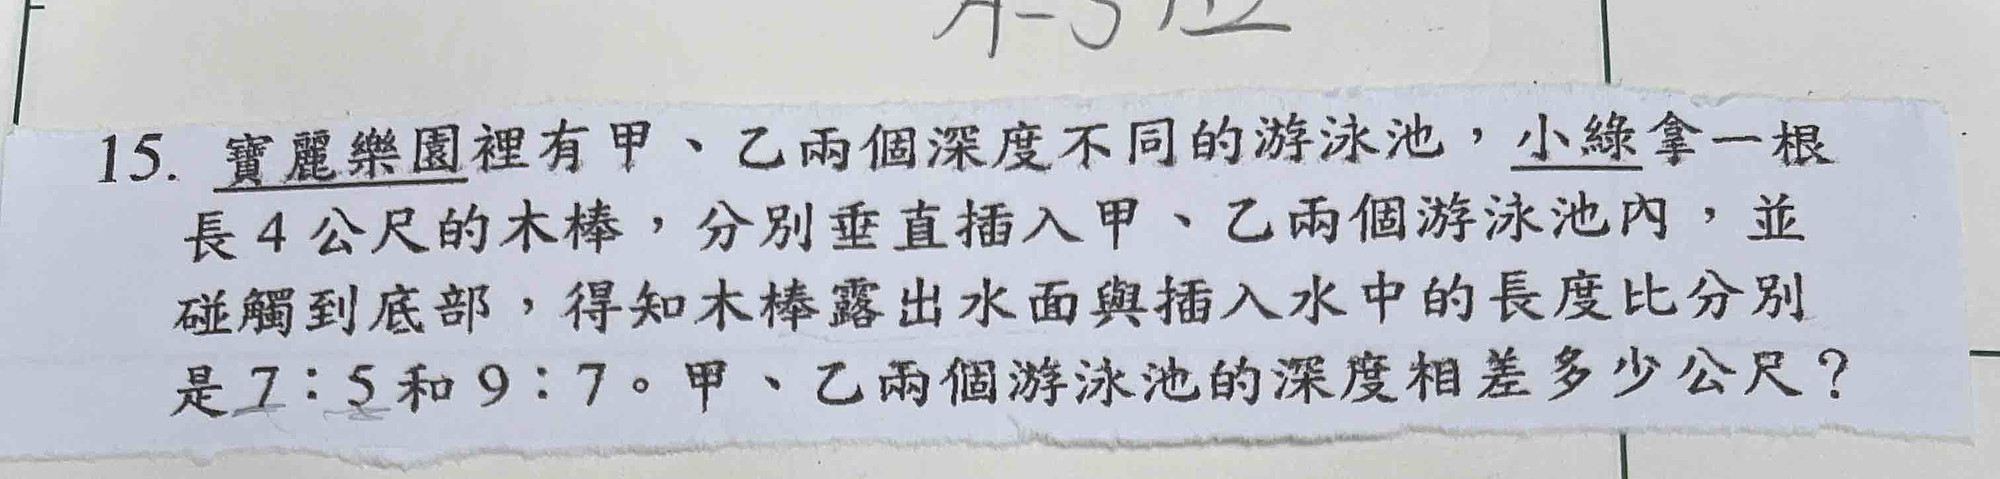 15. 寶麗樂園裡有甲、乙兩個深度不同的游泳池，小綠拿一根
長4公尺的木棒，分別垂直插入甲、乙兩個游泳池內，並
碰觸到底部，得知木棒露出水面與插入水中的長度比分別
是7：5和9：7。甲、乙兩個游泳池的深度相差多少公尺？